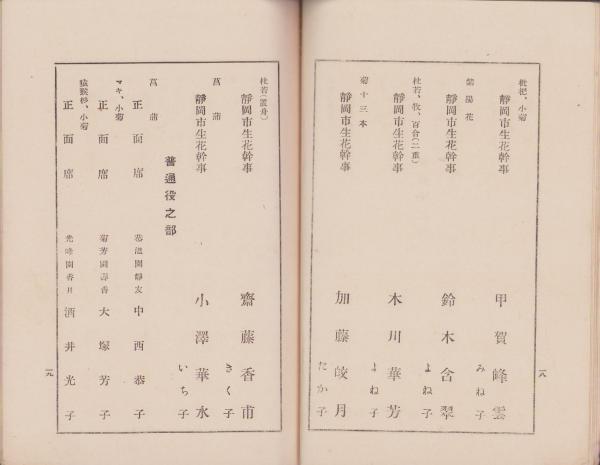 枇杷、小菊
靜岡市生花幹事 甲賀峰雲
みね子
紫陽花
靜岡市生花幹事 鈴木含翠
よね子
杜若、牧、百合(二重)
靜岡市生花幹事 木川華芳
よね子
菊十三本
靜岡市生花幹事 加藤皎月
たか子
一八
杜若(置舟)
靜岡市生花幹事 齋藤香甫
きく子
菖蒲
靜岡市生花幹事 小澤華水
いち子
普通役之部
菖蒲
正面席 靜友 中西恭子
マキ、小菊
正面席 菊芳園壽香 大塚芳子
猿猴杉、小菊
正面席 光峰園香月 酒井光子
一九